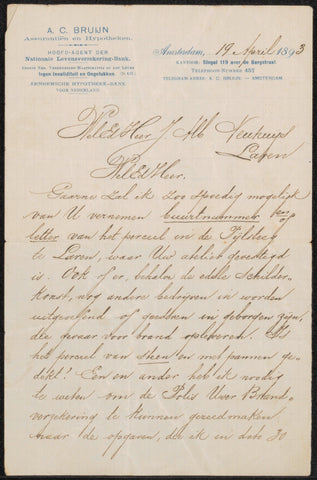 A. C. BRUIJN
Assurantiën en Hypotheken.
HOOFD-AGENT DER
Nationale Levensverzekering-Bank,
tegen Invaliditeit en Ongelukken.
ARNHEMSCHE HYPOTHEEK-BANK
VOOR NEDERLAND.
Amsterdam, 19 April 1893
KANTOOR: Singel 119 over de Bergstraat
TELEPHOON-NUMMER 457
TELEGRAM-ADRES: A. C. BRUIJN - AMSTERDAM.
WelEd Heer J. Alb Neuhuijs
Laren
WelEd Heer.
Gaarne zal ik zoo spoedig mogelijk
van U vernemen buurtnummer en of
letter van het perceel in de
te Laren, waar Uw atelier gevestigd
is. Ook of er, behalve de edele Schilder-
konst, nog andere bedrijven in worden
uitgeoefend of goederen in geborgen zijn,
die gevaar voor brand opleveren. Is
het perceel van steen en met pannen ge-
dekt? Een en ander heb ik noodig
te weten om de Polis Uwer Brand-
verzekering te kunnen gereedmaken
naar de opgaven, die ik in dato 30